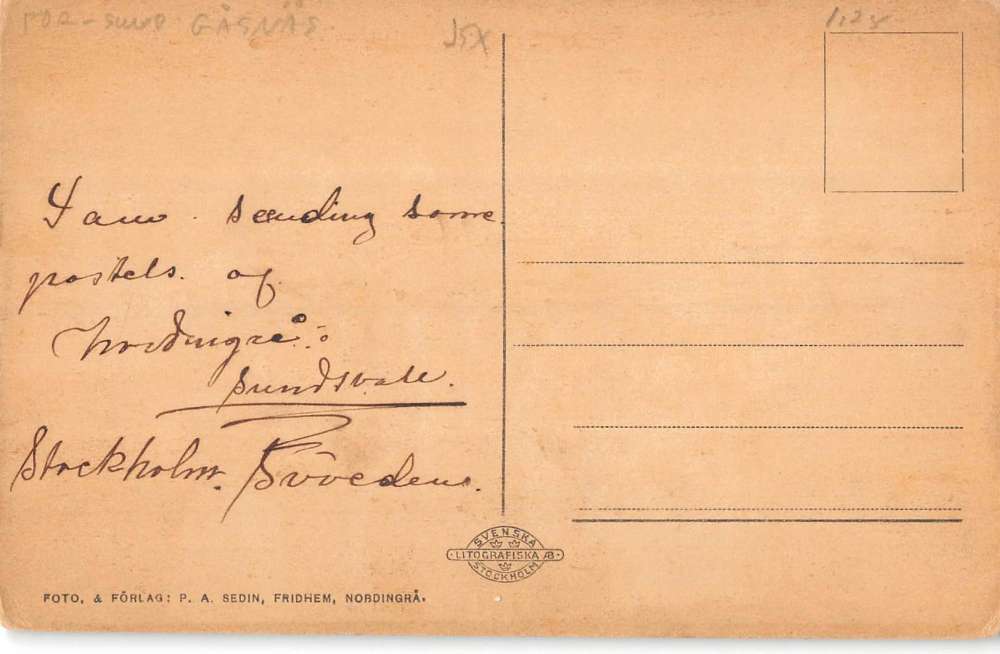 GÅSNÄS
I am sending some
postels. of
Nordingrå.
Sundsvall.
Stockholm. Sweden.
SVENSKA
LITOGRAFISKA AB
STOCKHOLM
FOTO. & FÖRLAG: P. A. SEDIN, FRIDHEM, NORDINGRÅ.